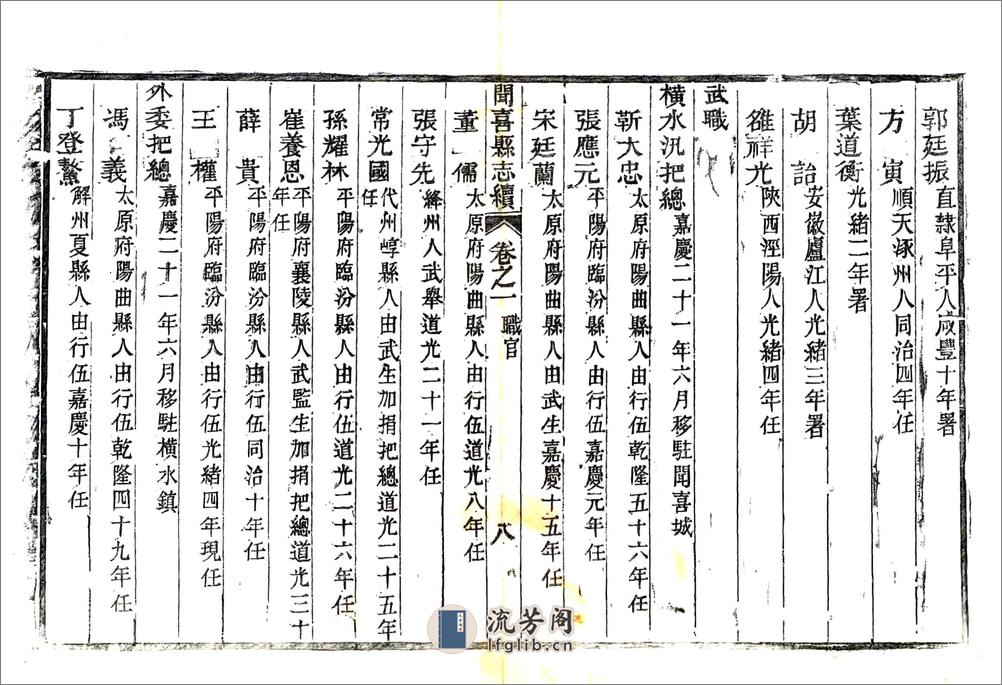 郭廷振 直隸阜平人咸豐十年署
方寅 順天涿州人同治四年任
葉道衡 光緒二年署
胡詒 安徽廬江人光緒三年署
雒祥光 陝西涇陽人光緒四年任
武職
橫水汛把總 嘉慶二十一年六月移駐聞喜城
靳大忠 太原府陽曲縣人由行伍乾隆五十六年任
張應元 平陽府臨汾縣人由行伍嘉慶元年任
宋廷蘭 太原府陽曲縣人由武生嘉慶十五年任
聞喜縣志續 卷之一 職官 八
董儒 太原府陽曲縣人由行伍道光八年任
張守先 絳州人武舉道光二十一年任
常光國 代州崞縣人由武生加捐把總道光二十五年
任
孫耀林 平陽府臨汾縣人由行伍道光二十六年任
崔養恩 平陽府襄陵縣人武監生加捐把總道光三十
年任
薛貴 平陽府臨汾縣人由行伍同治十年任
王權 平陽府臨汾縣人由行伍光緒四年現任
外委把總 嘉慶二十一年六月移駐橫水鎮
馮義 太原府陽曲縣人由行伍乾隆四十九年任
丁登鰲 解州夏縣人由行伍嘉慶十年任
流芳阁
lfglib.cn